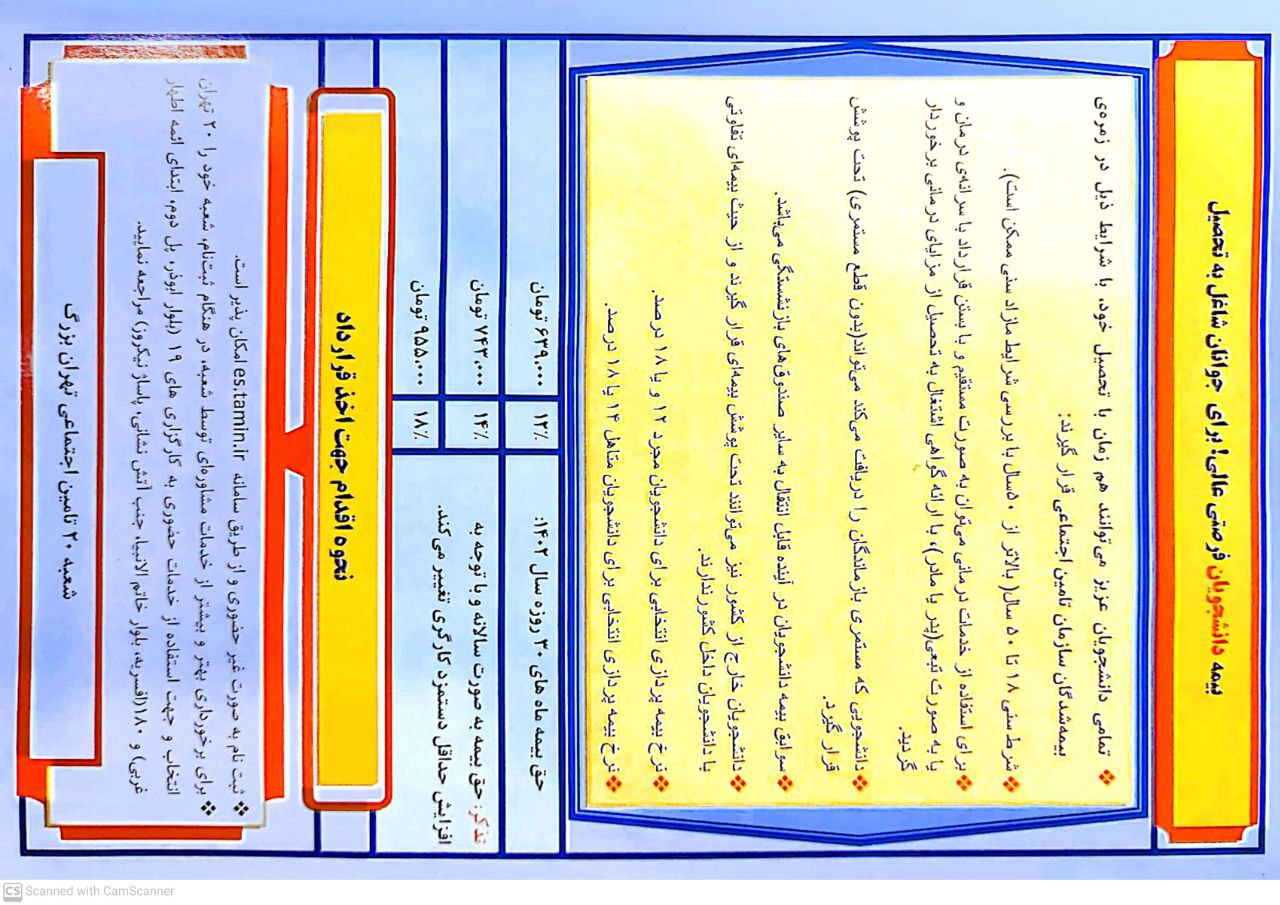 بیمه دانشجویان فرصتی عالی! برای جوانان شاغل به تحصیل
❖ تمامی دانشجویان عزیز می‌توانند هم زمان با تحصیل خود، با شرایط ذیل در زمره‌ی
بیمه‌شدگان سازمان تامین اجتماعی قرار گیرند:
❖شرط سنی ۱۸ تا ۵۰ سال( بالاتر از ۵۰سال با بررسی شرایط مازاد سنی ممکن است).
❖برای استفاده از خدمات درمانی می‌توان به صورت مستقیم و با بستن قرارداد با سرانه‌ی درمان و
یا به صورت تبعی(پدر یا مادر)، با ارائه گواهی اشتغال به تحصیل از مزایای درمانی برخوردار
گردید.
❖دانشجویی که مستمری بازماندگان را دریافت می‌کند می‌تواند(بدون قطع مستمری) تحت پوشش
قرار گیرد.
❖سوابق بیمه دانشجویان در آینده قابل انتقال به سایر صندوق‌های بازنشستگی می‌باشد.
❖دانشجویان خارج از کشور نیز می‌توانند تحت پوشش بیمه‌ای قرار گیرند و از حیث بیمه‌ای تفاوتی
با دانشجویان داخل کشور ندارند.
❖نرخ بیمه پردازی انتخابی برای دانشجویان مجرد ۱۲ و یا ۱۸ درصد.
❖نرخ بیمه پردازی انتخابی برای دانشجویان متاهل ۱۴ یا ۱۸ درصد.
حق بیمه ماه های ۳۰ روزه سال ۱۴۰۲:
۱۲٪ ۶۳۹,۰۰۰ تومان
تذکر: حق بیمه به صورت سالانه و با توجه به
افزایش حداقل دستمزد کارگری تغییر می‌کند.
۱۴٪ ۷۴۳,۰۰۰ تومان
۱۸٪ ۹۵۵,۰۰۰ تومان
نحوه اقدام جهت اخذ قرارداد
❖ ثبت نام به صورت غیر حضوری و از طریق سامانه es.tamin.ir امکان پذیر است.
❖ برای برخورداری بهتر و بیشتر از خدمات مشاوره‌ای توسط شعبه، در هنگام ثبت‌نام، شعبه خود را ۲۰ تهران
انتخاب و جهت استفاده از خدمات حضوری به کارگزاری های ۱۹ (بلوار ابوذر، پل دوم، ابتدای ائمه اطهار
غربی) و ۱۸۰(افسریه، بلوار خاتم الانبیا، جنب آتش نشانی، پاساژ نیکروز) مراجعه نمایید.
شعبه ۲۰ تامین اجتماعی تهران بزرگ
CS Scanned with CamScanner